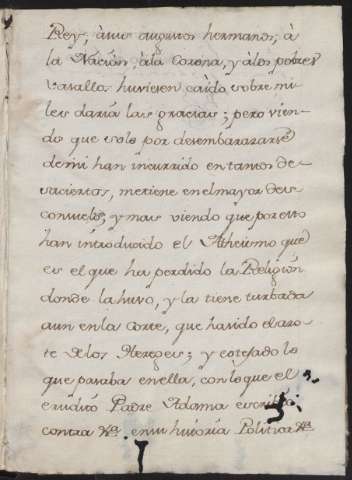 Rey, à sus augustos hermanos, à
la Nacion, àla Corona, y àlos pobres
vasallos huviesen caìdo sobre mi
les daria las gracias; pero vien-
do que solo por desembarazarse
de mi han incurrido en tantos de-
saciertos, me tiene en el mayor des-
consuelo; y mas viendo que por esto
han introducido el Atheismo que
es el que ha perdido la Religion
donde la huvo, y la tiene turbada
aun en la Corte, que ha sido el azo-
te de los Hereges; y cotejado lo
que pasaba en ella, con lo que el
erudito Padre Adama escribiò
contra en su historia Politica